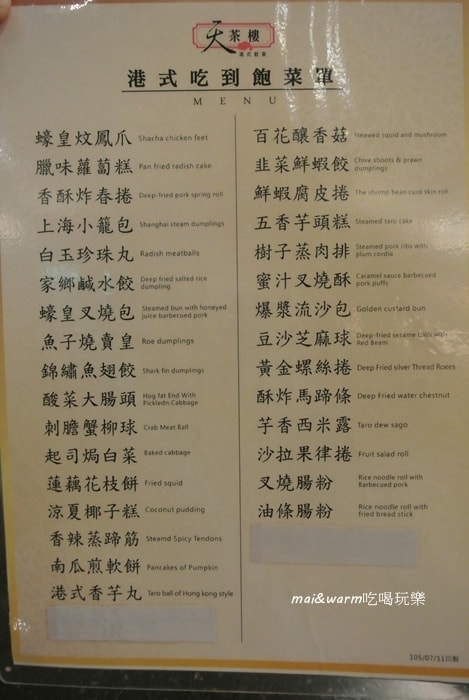 天茶樓
港式飲茶
港式吃到飽菜單
MENU
蠔皇炆鳳爪 Shacha chicken feet
臘味蘿蔔糕 Pan fried radish cake
香酥炸春捲 Deep-fried pork spring roll
上海小籠包 Shanghai steam dumplings
白玉珍珠丸 Radish meatballs
家鄉鹹水餃 Deep fried salted rice dumpling
蠔皇叉燒包 Steamed bun with honeyed juice barbecued pork
魚子燒賣皇 Roe dumplings
錦繡魚翅餃 Shark fin dumplings
酸菜大腸頭 Hog fat End With Pickledn Cabbage
刺膽蟹柳球 Crab Meat Ball
起司焗白菜 Baked cabbage
蓮藕花枝餅 Fried squid
涼夏椰子糕 Coconut pudding
香辣蒸蹄筋 Steamd Spicy Tendons
南瓜煎軟餅 Pancakes of Pumpkin
港式香芋丸 Taro ball of Hong kong style
百花釀香菇 Steamed squid and mushroom
韭菜鮮蝦餃 Chive shoots & prawn dumplings
鮮蝦腐皮捲 The shrimp bean curd skin roll
五香芋頭糕 Steamed taro cake
樹子蒸肉排 Steamed pork ribs with plum cordia
蜜汁叉燒酥 Caramel sauce barbecued pork puffs
爆漿流沙包 Golden custard bun
豆沙芝麻球 Deep-fried sesame balls with Red Beam
黃金螺絲捲 Deep Fried silver Thread Roees
酥炸馬蹄條 Deep Fried water chestnut
芋香西米露 Taro dew sago
沙拉果律捲 Fruit salad roll
叉燒腸粉 Rice noodle roll with Barbecued pork
油條腸粉 Rice noodle roll with fried bread stick
mai&warm吃喝玩樂
105/07/11印製